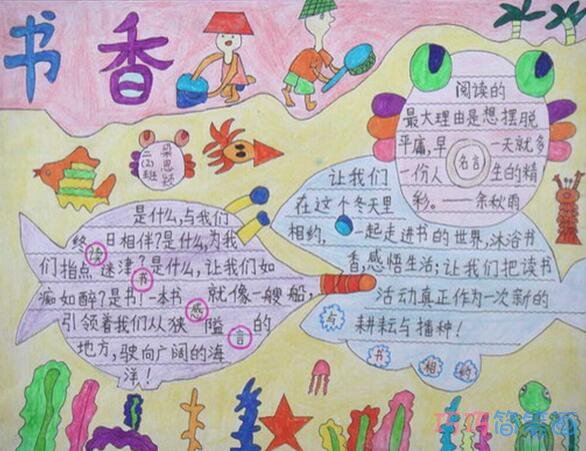 书香
阅读的
最大理由是想摆脱
平庸,早一天就多
一份人生的精
彩。——余秋雨
名言
二(2)班
让我们
在这个冬天里
相约,一起走进书的世界,沐浴书
香,感悟生活;让我们把读书
活动真正作为一次新的
耕耘与播种!
与书相约
是什么,与我们
终日相伴?是什么,为我
们指点迷津?是什么,让我们如
痴如醉?是书!一本书就像一艘船,
引领着我们从狭隘的
地方,驶向广阔的海
洋!
读书感言